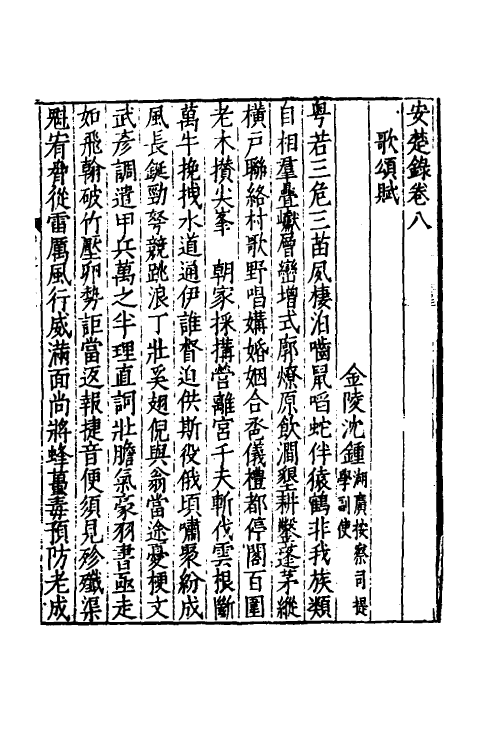 安楚錄卷八
歌頌賦
金陵沈鍾湖廣按察司提學副使
粤若三危三苗風棲泊嚙鼠啗蛇伴猿鶴非我族類
自相羣疊巘層巒增式廓燎原飲澗墾耕鑿蓬茅縱
橫戶聯絡村歌野唱媾婚姻合卺儀禮都停閣百圍
老木攅尖峯　朝家採搆營離宮千夫斬伐雲根斷
萬牛挽拽水道通伊誰督迫供斯役俄頃嘯聚紛成
風長鋋勁弩競跳浪丁壯奚翅倪與翁當途憂梗文
武彦調遣甲兵萬之半理直詞壯膽氣豪羽書亟走
如飛翰破竹壓卵勢詎當返報捷音便須見殄殲渠
魁宥脅從雷厲風行威滿面尚將蜂蠆毒預防老成